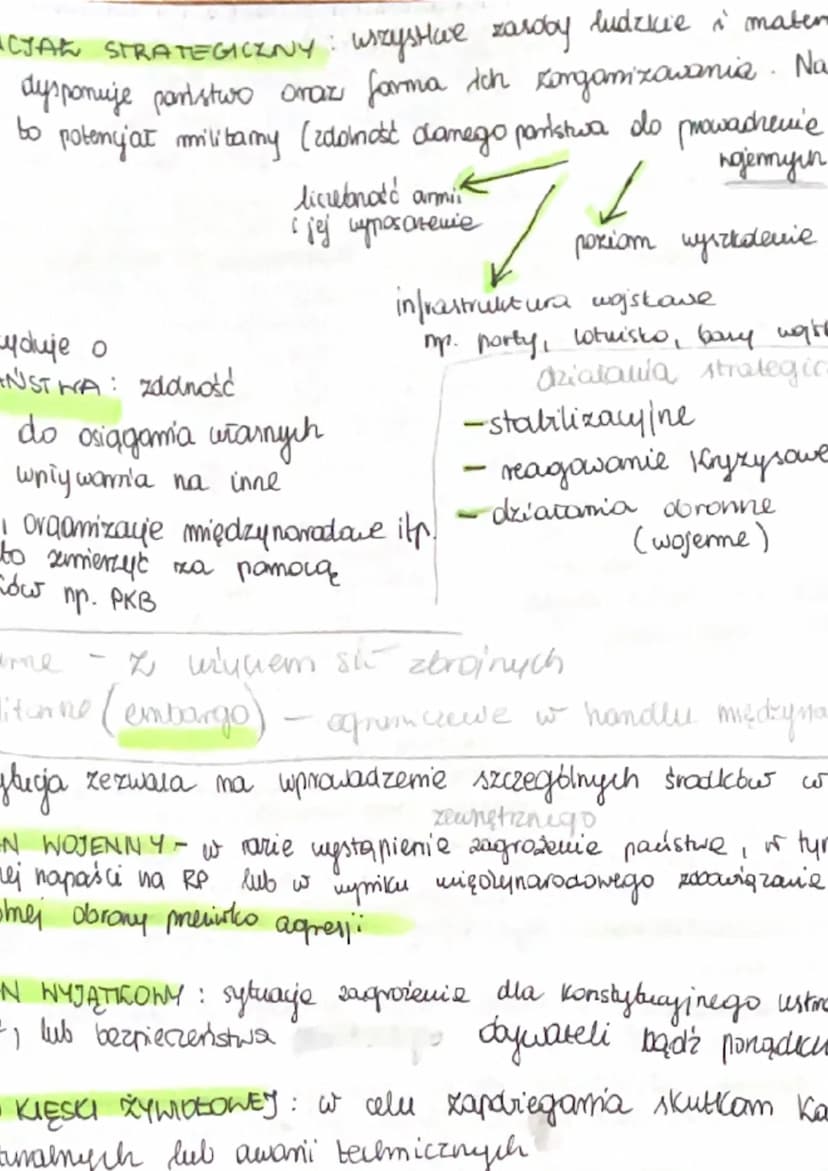 CJAŁ STRATEGICZNY: wszystkie zasoby ludzkie i mater
dysponuje państwo oraz forma ich zorganizowania. Na
to potencjał militarny (zdolność danego państwa do prowadzenie
wojennych
liczebność armii
i jej wyposażenie
poziom wyszkolenie
infrastruktura wojskowe
np. porty, lotnisko, bazy wojsk
yduje o
AŃSTWA: zdolność
do osiągania własnych
wpływania na inne
i organizacje międzynarodowe itp.
to zmierzyć za pomocą
ków np. PKB
działania strategic
- stabilizacyjne
- reagowanie kryzysowe
- działania obronne
(wojenne)
rne - z użyciem sił zbrojnych
litarne (embargo) - ograniczenie w handlu międzyna
ytucja zezwala na wprowadzenie szczególnych środków w
zewnętrznego
N WOJENNY - w razie wystąpienie zagrożenie państwa, w tym
ej napaści na RP lub w wyniku międzynarodowego zobowiązanie
lnej obrony przeciwko agresji
N WYJĄTKOWY: sytuacje zagrożenie dla konstytucyjnego ustro
, lub bezpieczeństwa obywateli bądź porządku
KLĘSKI ŻYWIOŁOWEJ: w celu zapobiegania skutkom ka
turalnych lub awarii technicznych